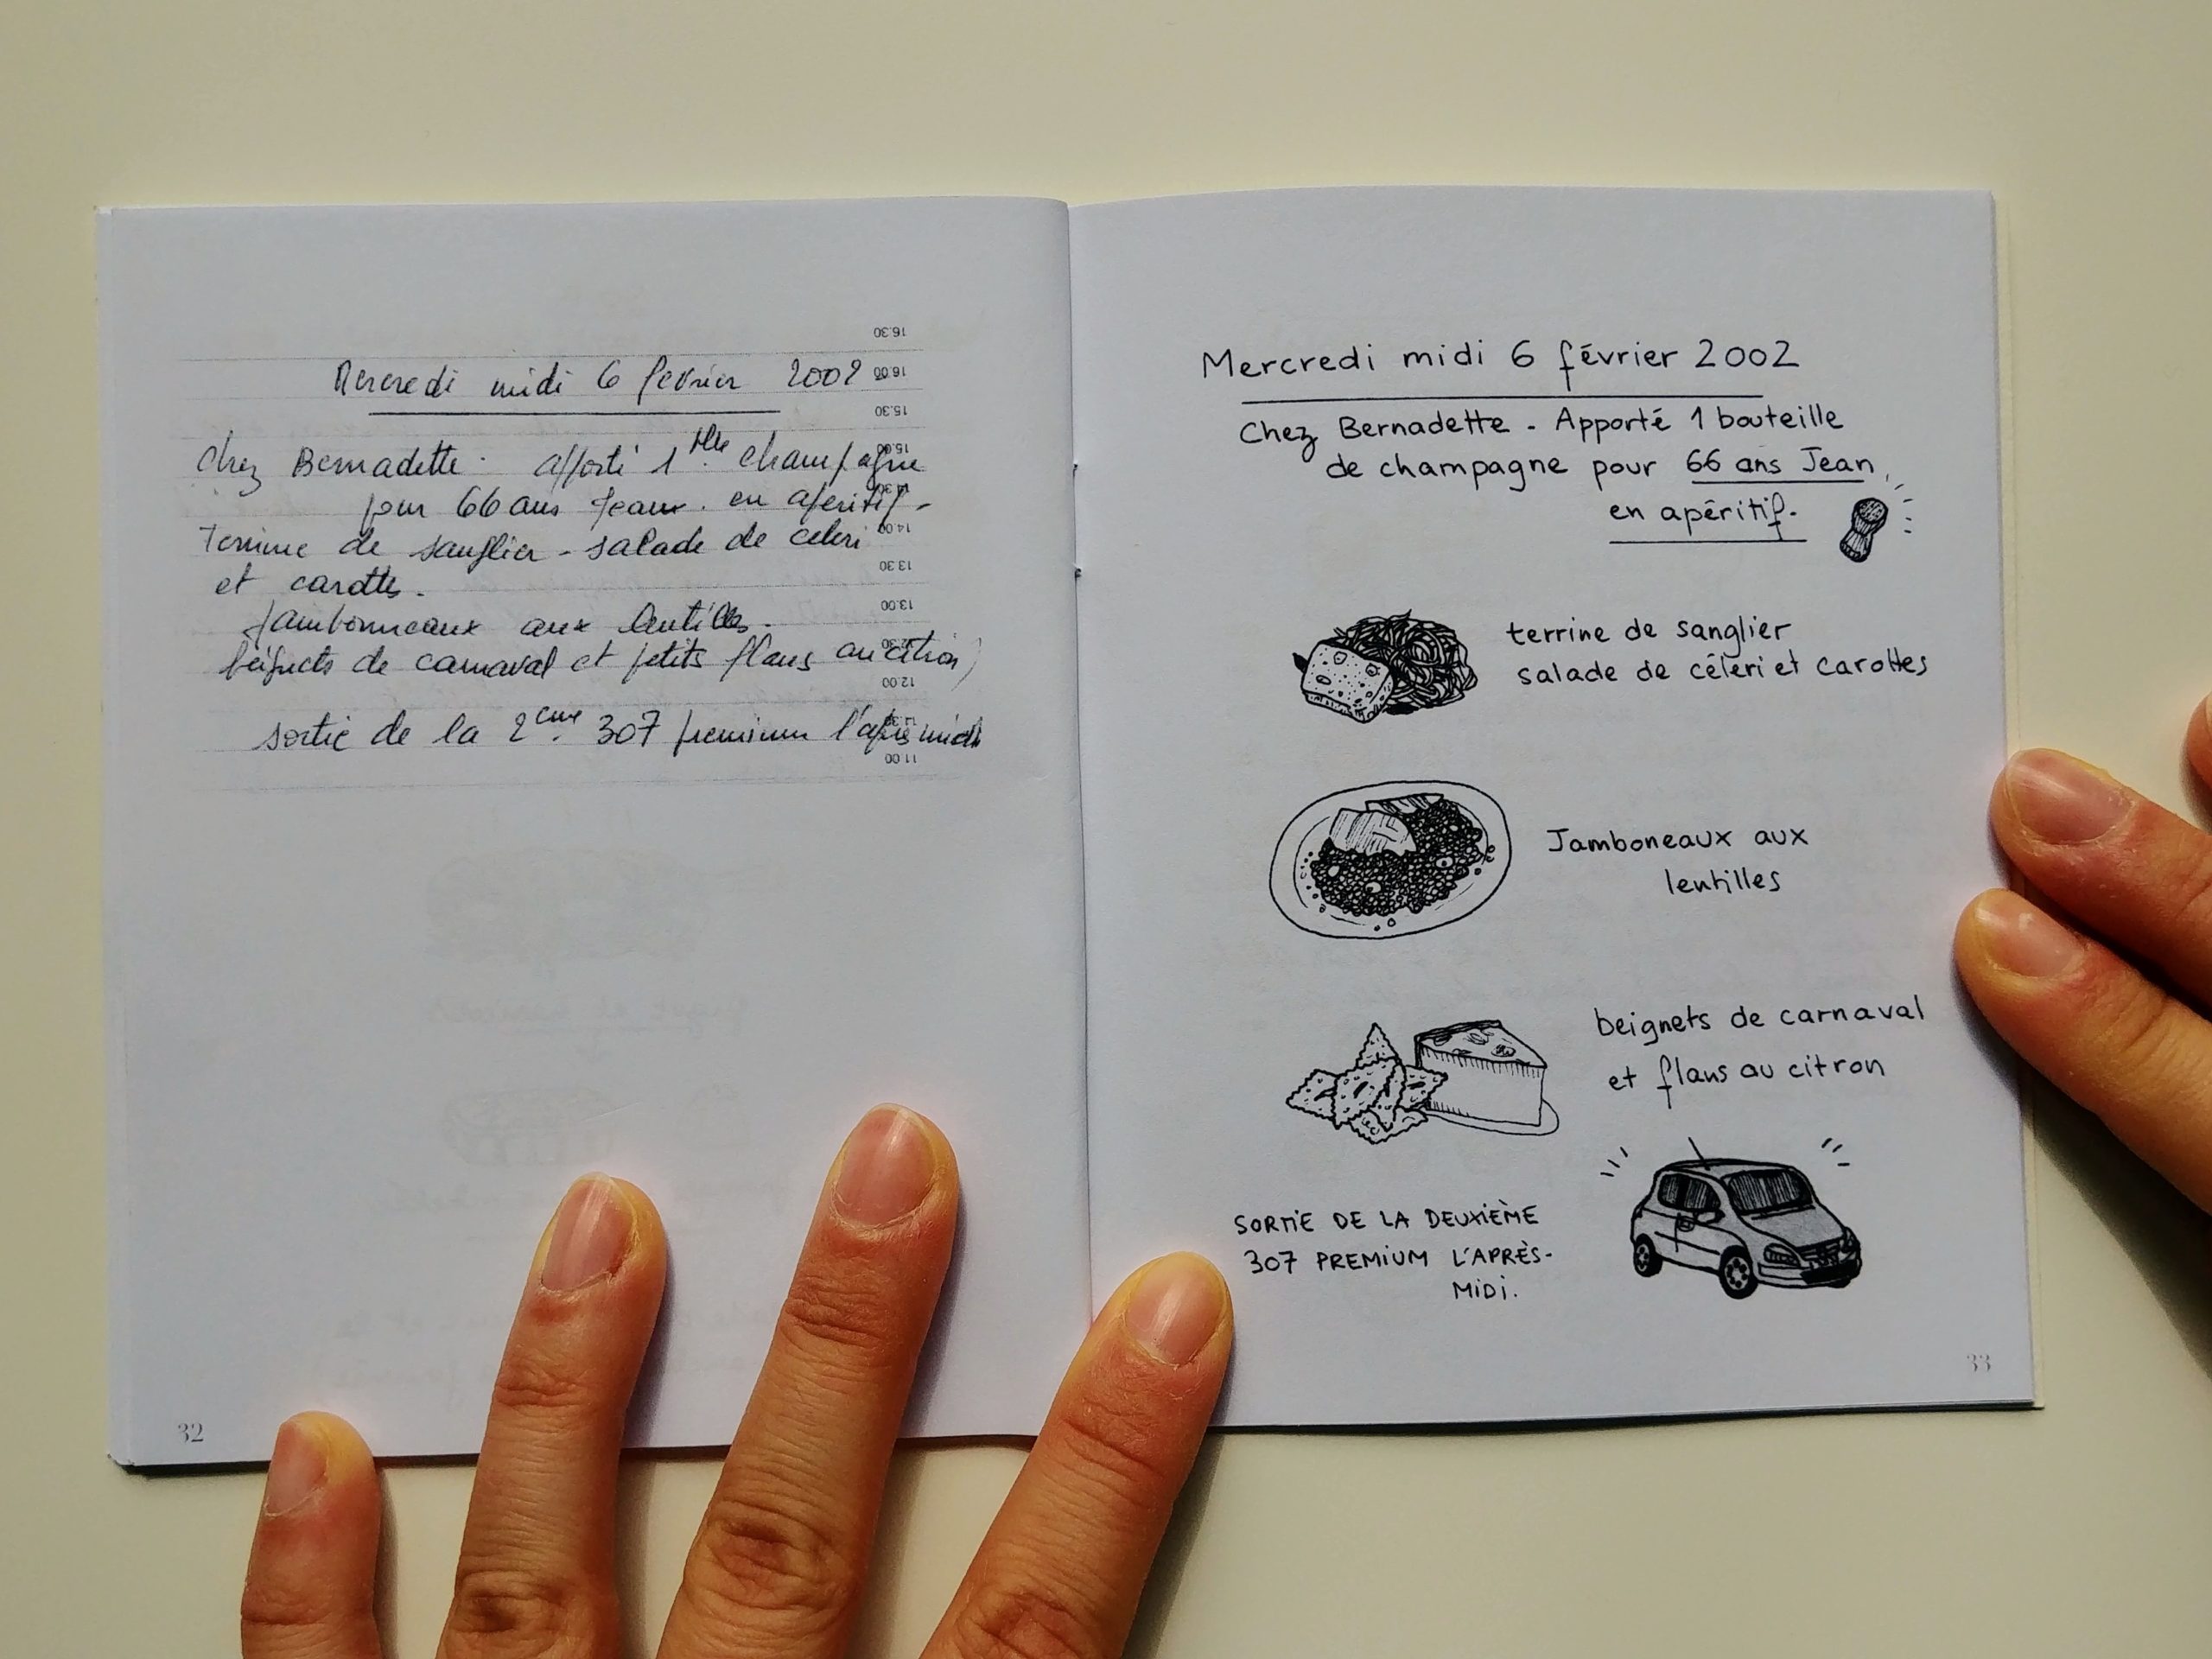 16.30
Mercredi midi 6 fevrier 2002
16.00
15.30
Chez Bernadette. apporté 1 Blle champagne
15.00
pour 66 ans Jean. en aperitif -
14.30
Terrine de sanglier - salade de celeri
14.00
et carottes.
13.30
Jambonneaux aux lentilles.
13.00
beignets de carnaval et petits flans au citron
12.30
12.00
sortie de la 2eme 307 premium l'après midi
11.30
11.00
32
Mercredi midi 6 février 2002
Chez Bernadette - Apporté 1 bouteille
de champagne pour 66 ans Jean,
en apéritif.
terrine de sanglier
salade de céleri et carottes
Jamboneaux aux
lentilles
beignets de carnaval
et flans au citron
SORTIE DE LA DEUXIÈME
307 PREMIUM L'APRÈS-
MIDI.
33